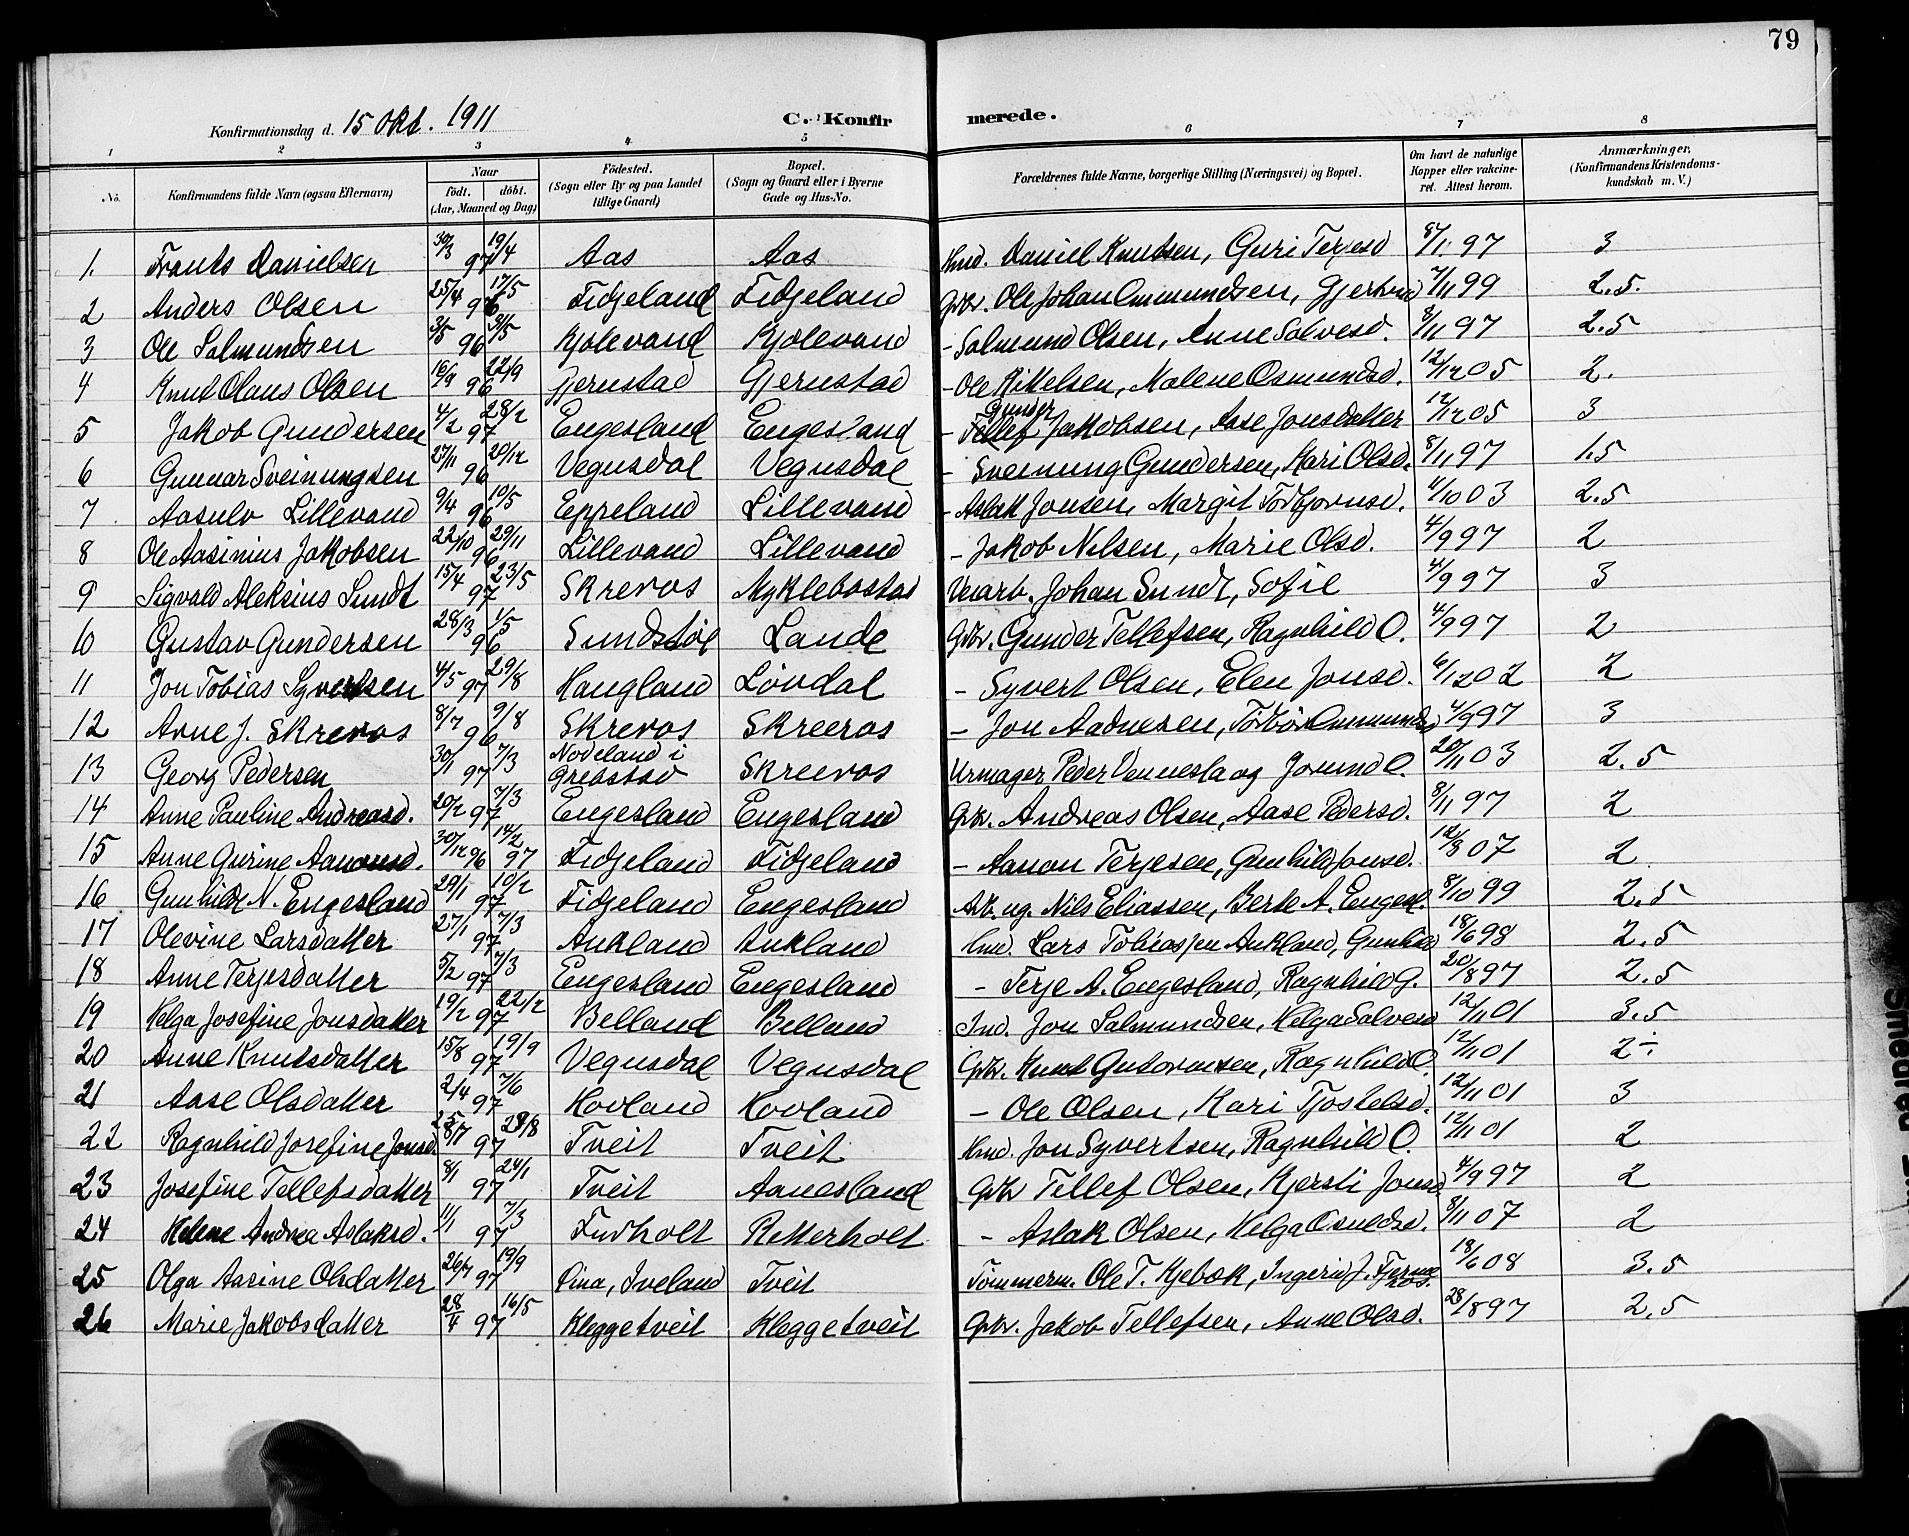 79
Konfirmationsdag d. 15 Okt. 1911 C. Konfirmerede.
1 2 3 4 5 6 7 8
No. Konfirmandens fulde Navn (ogsaa Efternavn) Naar født. døbt. (Aar, Maaned og Dag) Fødested. (Sogn eller By og paa Landet tillige Gaard) Bopæl. (Sogn og Gaard eller i Byerne Gade og Hus-No. Forældrenes fulde Navne, borgerlige Stilling (Næringsvei) og Bopæl. Om havt de naturlige Kopper eller vakcineret. Attest herom. Anmærkninger. (Konfirmandens Kristendomskundskab m. V.)
1. Frants Danielsen 30/3 97 19/4 Aas Aas Kmd. Daniel Knutsen, Guri Terjesd 8/11 97 3
2 Anders Olsen 25/4 96 17/5 Fidjeland Fidjeland Gbr. Ole Johan Ommundsen, Gjertrud 7/11 99 2.5.
3 Ole Salmundsen 3/5 96 31/5 Kjølevand Kjølevand - Salmund Olsen, Anne Salvesd. 8/11 97 2.5
4 Knut Olaus Olsen 16/9 96 27/9 Gjerustad Gjerustad - Ole Kittelsen, Malene Osmundsd. 12/12 05 2.
5 Jakob Gundersen 4/2 97 28/2 Engesland Engesland - Gunder Jakobsen, Aase Jonsdatter 12/12 05 3
6 Gunnar Sveinungsen 27/11 96 20/12 Vegusdal Vegusdal - Sveinung Gundersen, Kari Olsd. 8/11 97 1.5
7 Aasulv Lillevand 9/4 96 10/5 Eppeland Lillevand - Aslak Jonsen, Margit Torbjørnsd. 4/10 03 2.5
8 Ole Aasinius Jakobsen 22/10 96 29/11 Lillevand Lillevand - Jakob Nilsen, Marie Olsd. 4/9 97 2
9 Sigvald Aleksius Sundt 15/4 97 23/5 Skreros Myklebostad Veiarb. Johan Sundt, Sofie 4/9 97 3
10 Gustav Gundersen 28/3 96 1/5 Sundstøl Lande Gbr. Gunder Tellefsen, Ragnhild O. 4/9 97 2
11 Jon Tobias Syvertsen 4/5 97 29/8 Haugland Løvdal - Syvert Olsen, Elen Jonsd. 6/12 02 2
12 Arne J. Skreros 8/7 96 9/8 Skreros Skreeros - Jon Aadnesen, Torbør Ommundsd 4/9 97 3
13 Georg Pedersen 30/1 97 7/3 Nodeland i Grebstad Skreeros Urmager Peder Vennesla og Jorund O. 20/11 03 2.5
14 Anne Pauline Andreasd. 20/2 97 7/3 Engesland Engesland Gbr. Andreas Olsen, Aase Pedersd. 8/11 97 2
15 Anne Gurine Aanonsd. 30/12 96 14/2 97 Fidjeland Fidjeland - Aanon Terjesen, Gunhild Jonsd. 12/8 07 2
16 Gunhild N. Engesland 29/1 97 10/2 Fidjeland Engesland Arb. ug. Nils Eliassen, Berte A. Engesl. 8/10 99 2.5
17 Olevine Larsdatter 27/1 97 7/3 Aukland Aukland Kmd. Lars Tobiassen Aukland, Gunhild 18/6 98 2.5
18 Anne Terjesdatter 5/2 97 7/3 Engesland Engesland - Terje A. Engesland, Ragnhild G. 20/8 97 2.5
19 Helga Josefine Jonsdatter 19/2 97 22/2 Belland Belland Ind. Jon Salmundsen, Helga Salvesd 12/11 01 3.5
20 Anne Knutsdatter 15/8 97 19/9 Vegusdal Vegusdal Gbr. Knut Gutormsen, Ragnhild O 12/11 01 2÷
21 Aase Olsdatter 2/4 97 7/6 Hovland Hovland - Ole Olsen, Kari Tjostelsd. 12/11 01 3
22 Ragnhild Josefine Jonsd. 25/7 97 29/8 Tveit Tveit Kmd. Jon Syvertsen, Ragnhild O. 12/11 01 2
23 Josefine Tellefsdatter 8/1 97 24/1 Tveit Aanesland Gbr Tellef Olsen, Kjersti Jonsd 4/9 97 2
24 Helene Andrea Aslaksd. 11/1 97 7/3 Furholt Retterholt - Aslak Olsen, Helga Osuldsd. 8/11 07 2
25 Olga Aasine Olsdatter 26/7 97 19/9 Iveland Tveit Tømmerm. Ole T. Kjebæk, Ingerid J. 18/6 08 3.5
26 Marie Jakobsdatter 28/4 97 16/5 Kleggetveit Kleggetveit Gbr. Jakob Tellefsen, Anne Olsd. 28/8 97 2.5